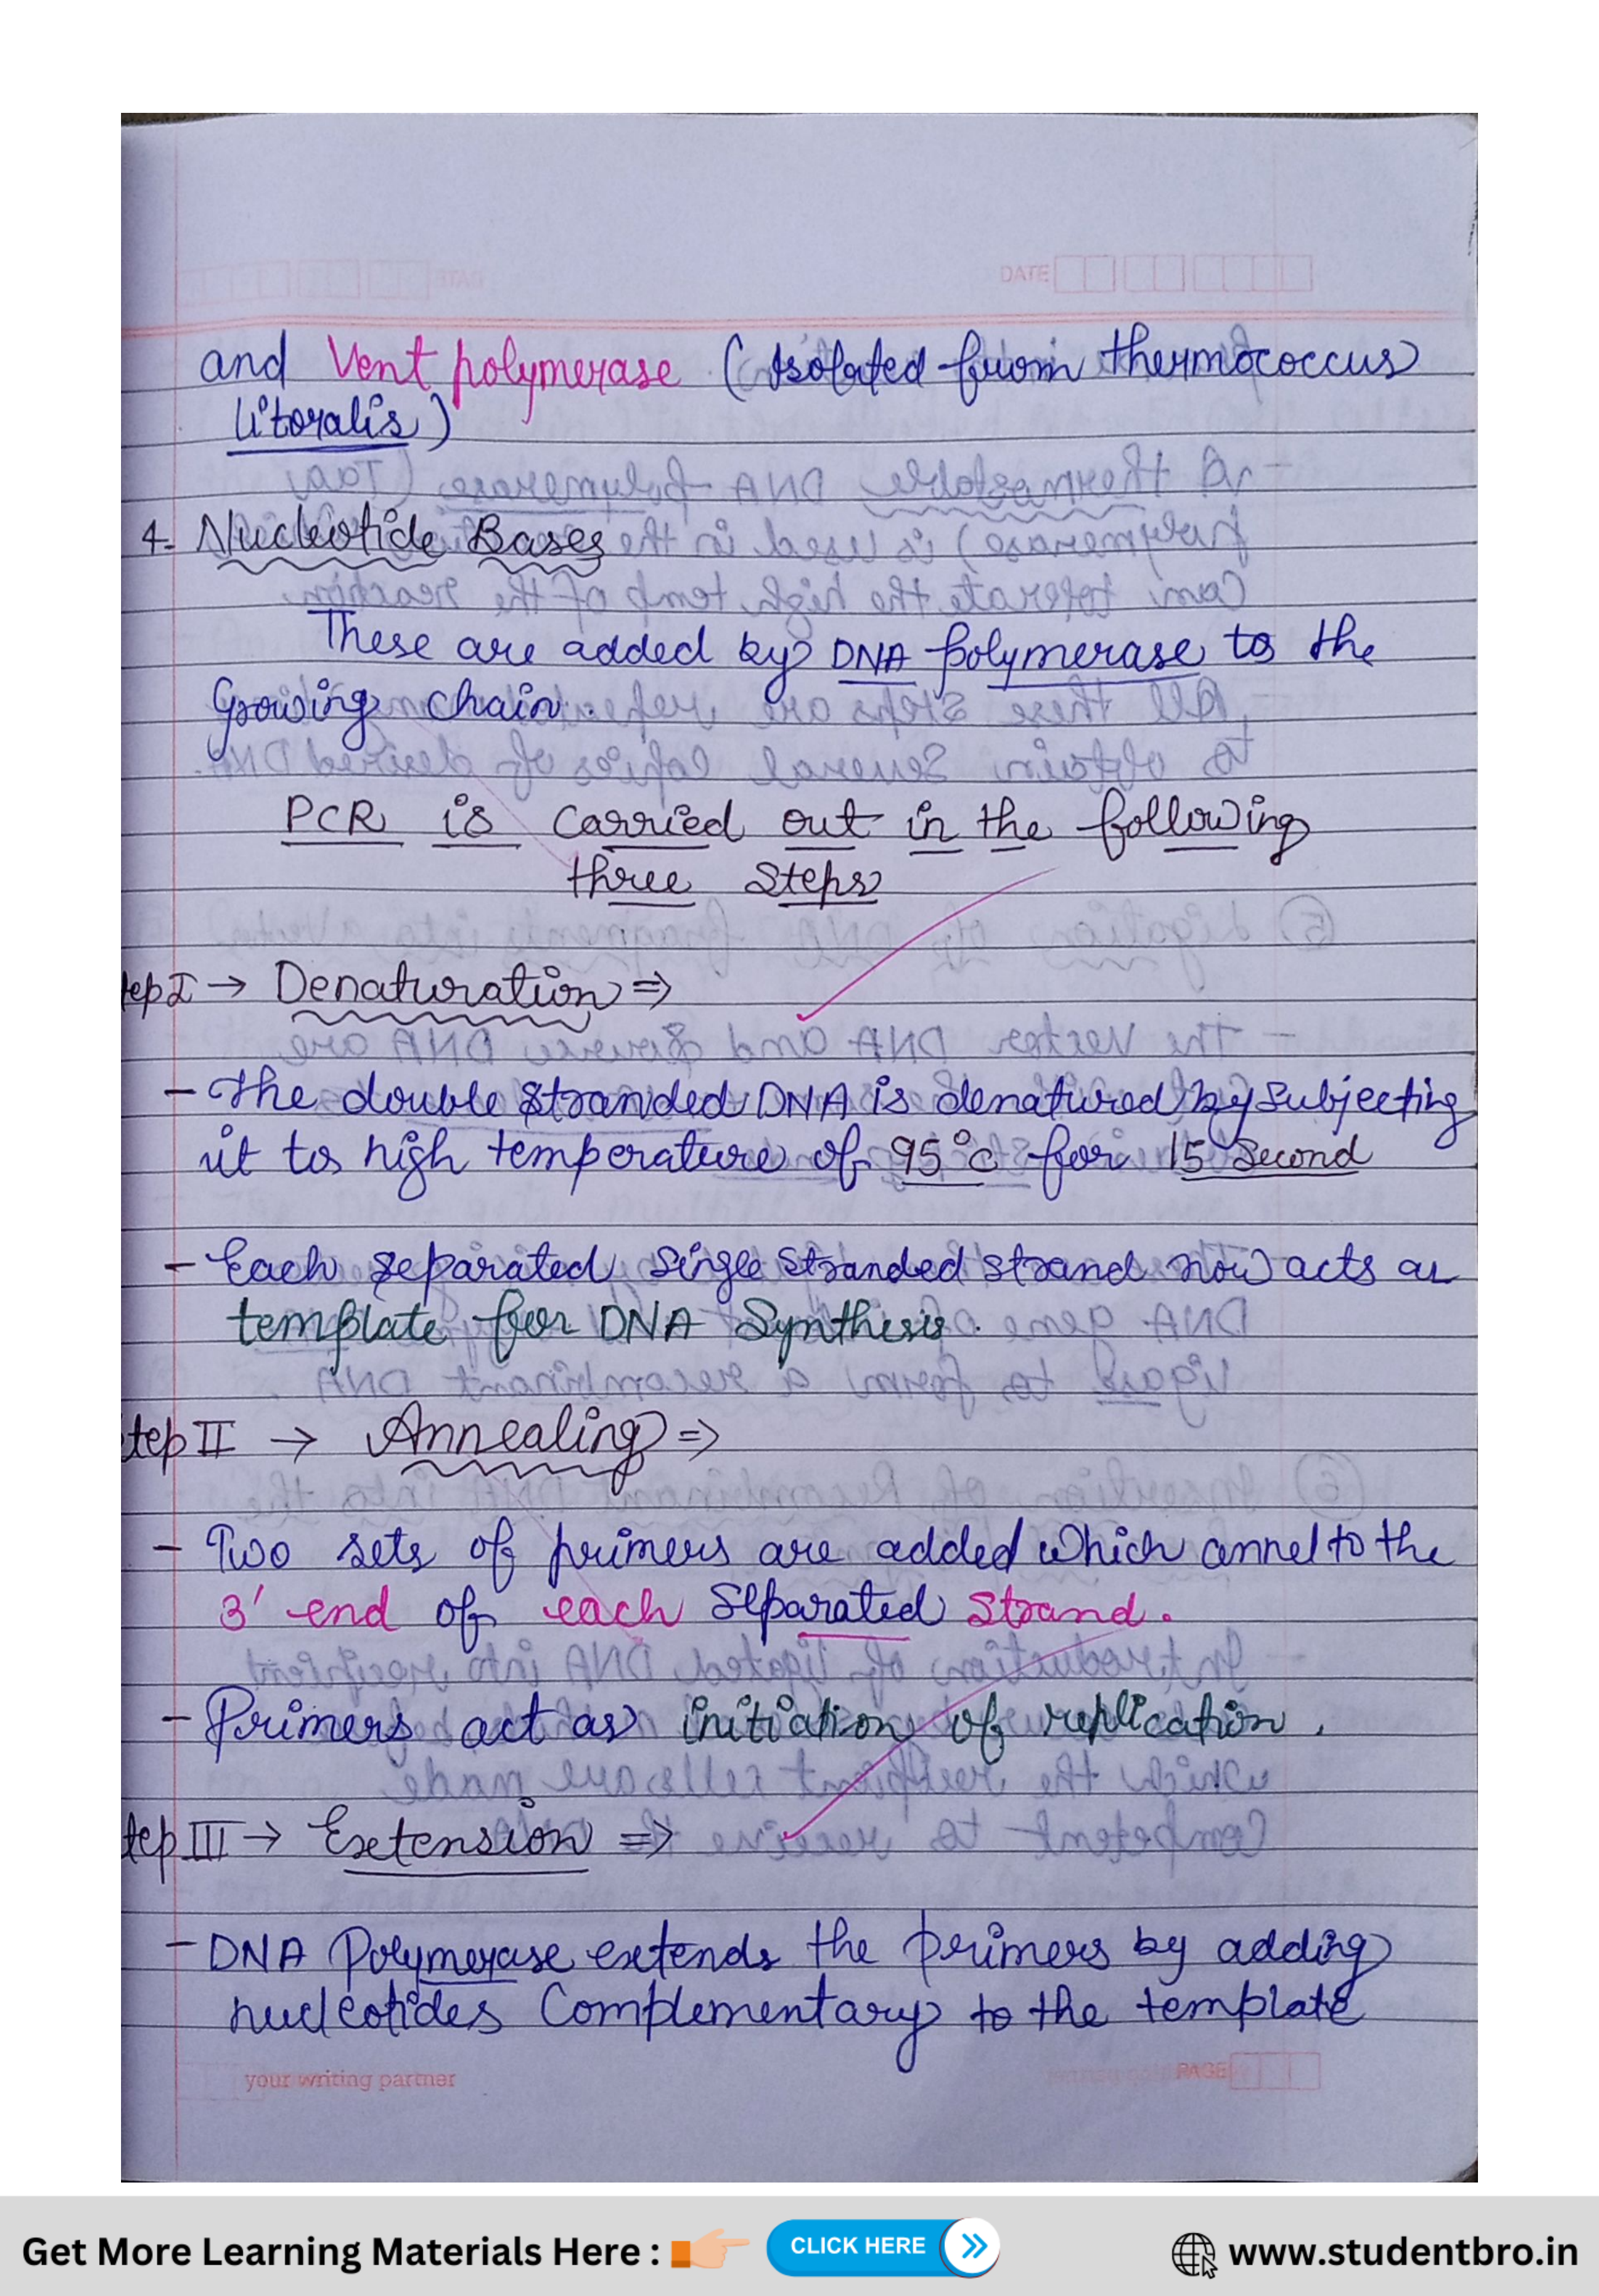 DATE
and Vent polymerase (Isolated from thermococcus
litoralis)
4. Nucleotide Bases
These are added by DNA polymerase to the
Growing chain.
PCR is carried out in the following
three steps
tep I → Denaturation ⇒
- The double stranded DNA is denatured by subjecting
it to high temperature of 95°c for 15 second
- Each separated single stranded strand now acts as
template for DNA Synthesis.
tep II → Annealing ⇒
- Two sets of primers are added which annel to the
3' end of each separated strand.
- Primers act as initiation of replication.
tep III → Extension ⇒
- DNA Polymerase extends the primers by adding
nucleotides Complementary to the template
your writing partner
PAGE
Get More Learning Materials Here :
CLICK HERE
www.studentbro.in